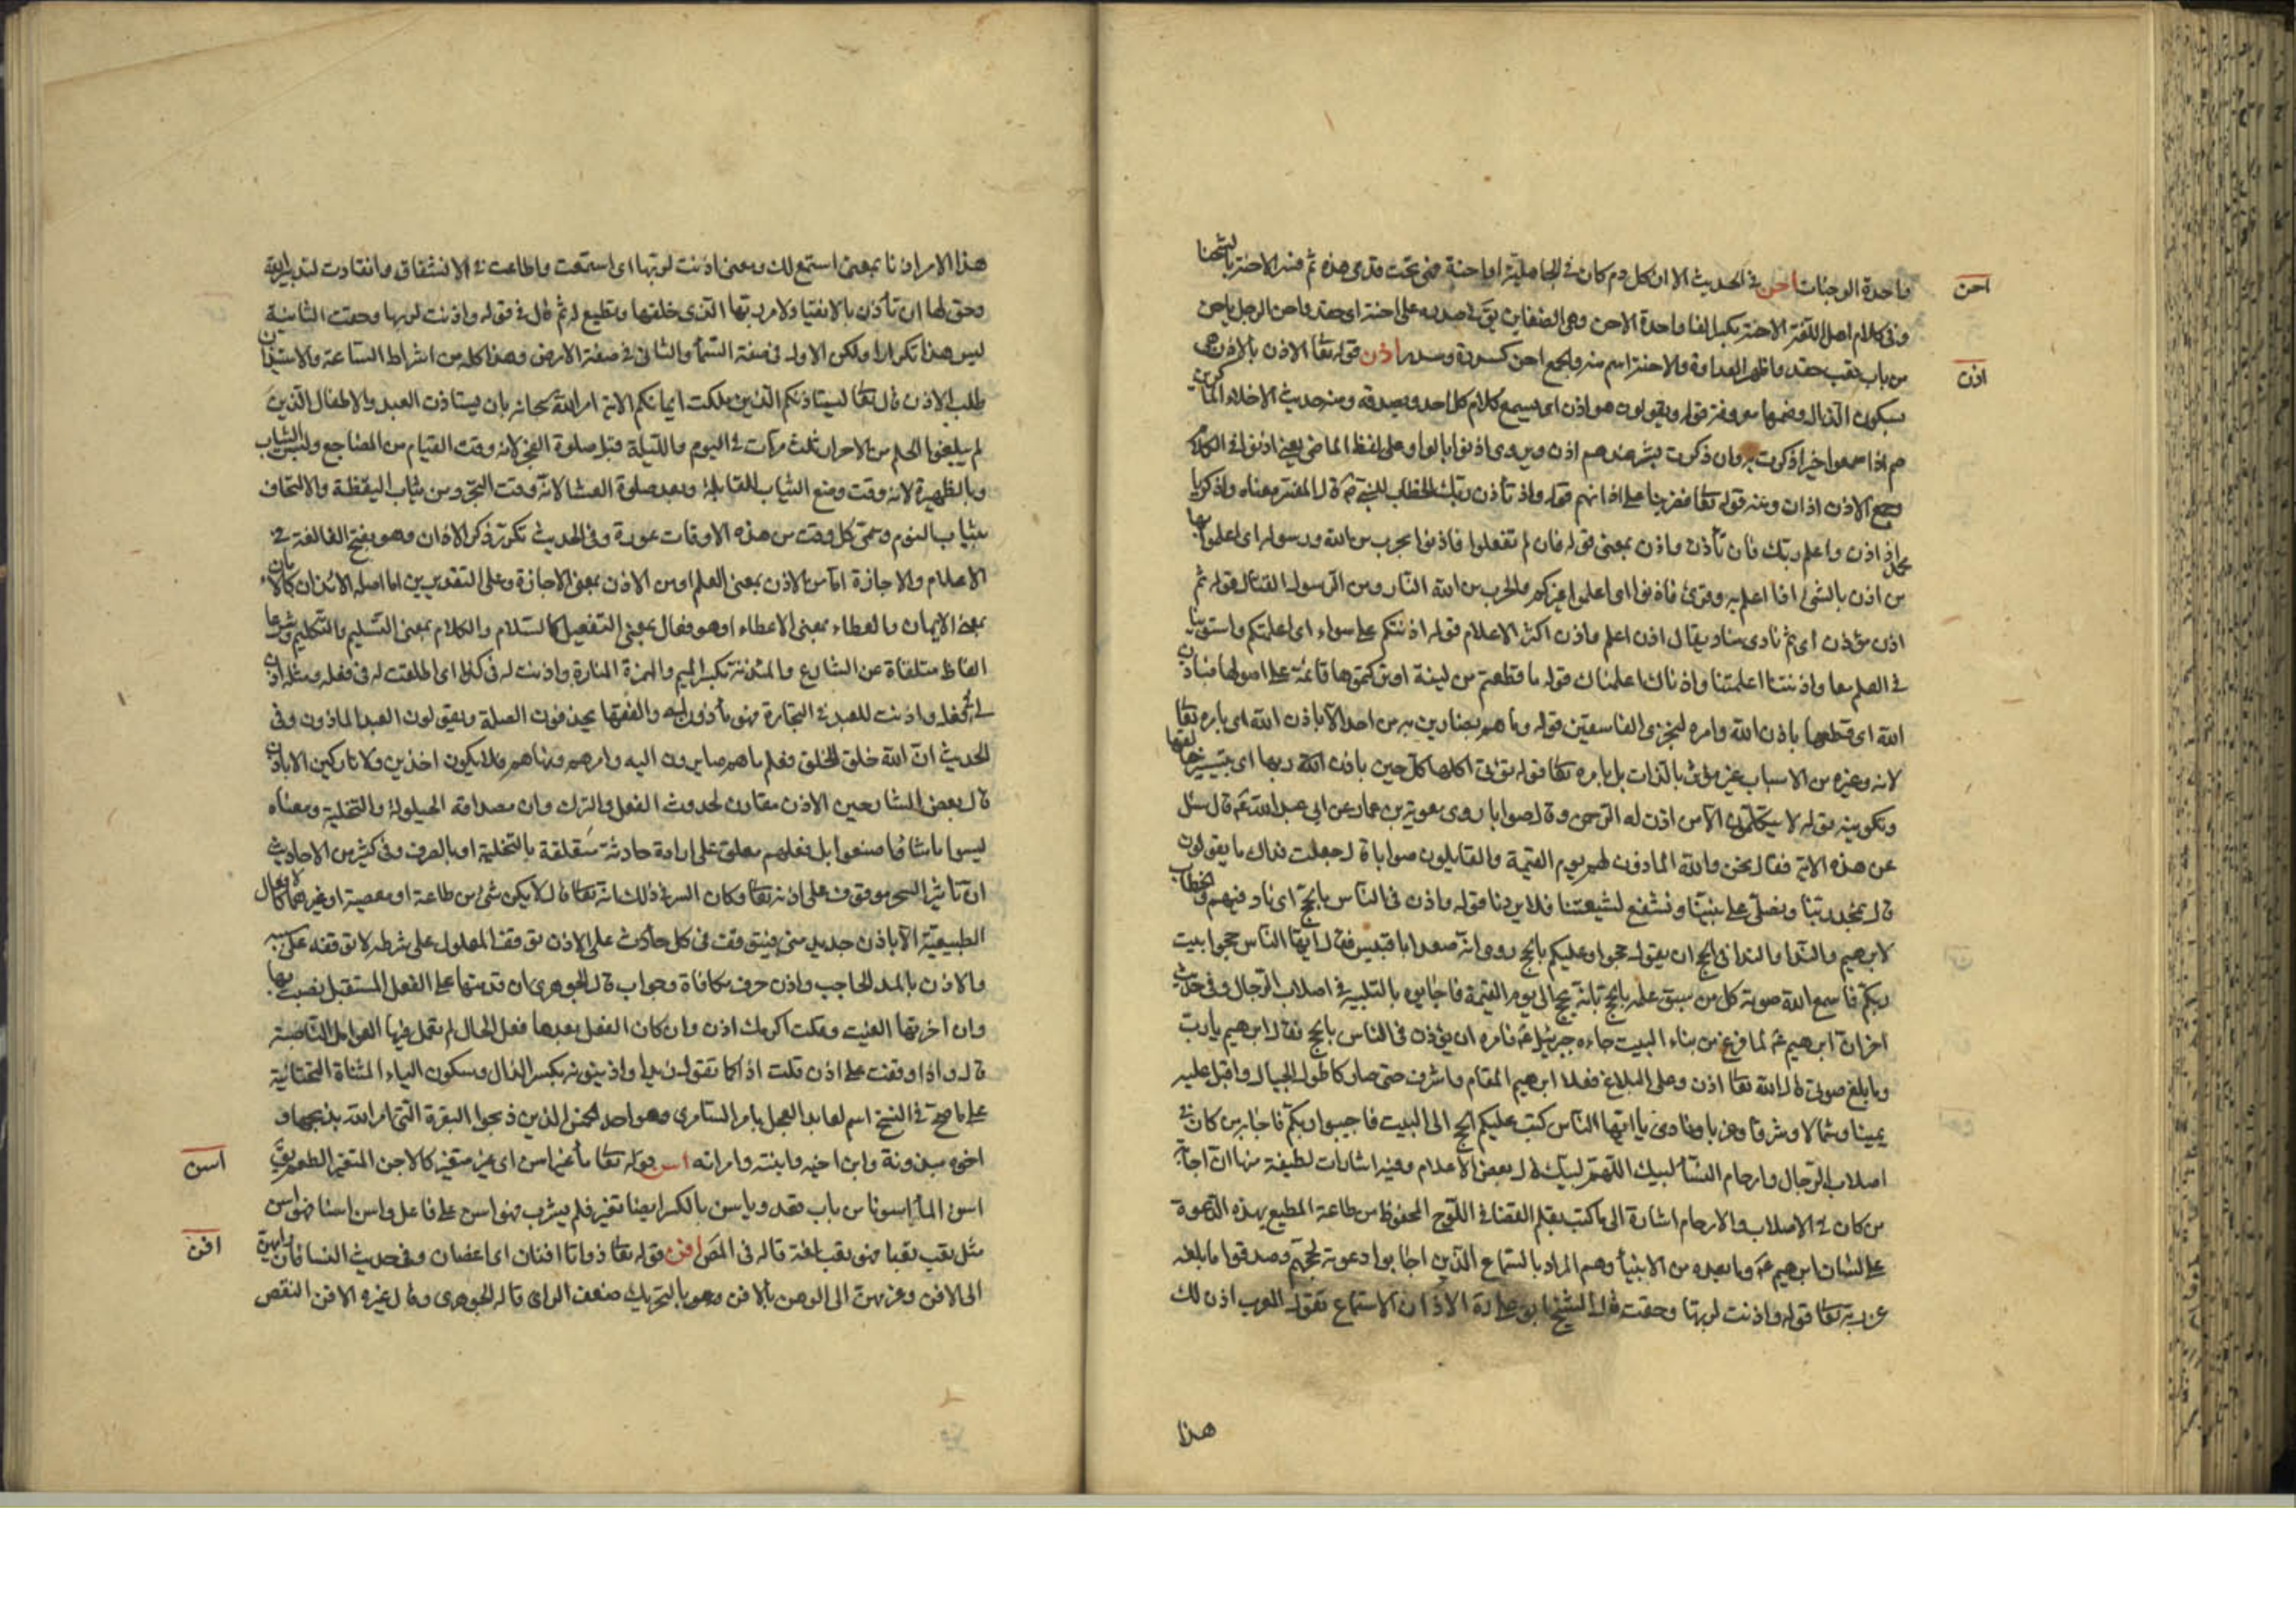 احن
واحدة الوجنات احن في الحديث الا ان كل دم كان في الجاهلية او احنة فهي تحت قدمي هذه ثم فسر الاحنة بالشحنا
وفي كلام اهل اللغة الاحنة بكسر الفا واحدة الاحن وهي الضغاين يق في صدره على احنة اي حقد واحن الرجل ياحن
من باب تعب حقد واظهر العداوة والاحنة اسم منه والجمع احن كسدرة وسدر اذن قوله تعا الاذن بالاذن هي
اذن
بسكون الذال وضمها معروفة قوله ويقولون هو اذن اي يسمع كلام كل احد ويصدقه ومنه حديث الاخلاء الماكرين
هم اذا سمعوا خيرا ذكرت به وان ذكرت بشر عندهم اذن ويروى اذنوا بالواو على لفظ الماضي يعني اذنوا في الكلام
وجمع الاذن اذان ومنه قوله تعا فضربنا على اذانهم قوله واذ تأذن ربك الخطاب للنبي ص قال المفسر معناه واذكر يا
محمد اذ اذن واعلم ربك فان تأذن واذن بمعنى قوله فان لم تفعلوا فاذنوا بحرب من الله ورسوله اي اعلموا بها
من اذن بالشئ اذا اعلم به وقرئ فاذنوا اي اعلموا غيركم والحرب من الله النار ومن الرسول القتال قوله ثم
اذن مؤذن اي ثم نادى مناد يقال اذن اعلم واذن اكثر الاعلام قوله اذنتكم على سواء اي اعلمتكم واستوينا
في العلم معا واذنتنا اعلمتنا واذناك اعلمناك قوله ما قطعتم من لينة او تركتموها قائمة على اصولها فباذن
الله اي قطعها باذن الله وامره ليخزي الفاسقين قوله وما هم بضارين به من احد الا باذن الله اي بامره تعا
لانه وغيره من الاسباب غير مؤثر بالذات بل بامره تعا قوله تؤتي اكلها كل حين باذن ربها اي بتيسير خالقها
وتكوينه قوله لا يتكلمون الا من اذن له الرحمن وقال صوابا روى معوية بن عمار عن ابي عبد الله ع قال سئل
عن هذه الاية فقال نحن والله الماذون لهم يوم القيمة والقايلون صوابا قال جعلت فداك ما يقولون
قال نمجد ربنا ونصلي على نبينا ونشفع لشيعتنا فلا يردنا قوله واذن في الناس بالحج اي ناد فيهم والخطاب
لابرهيم والندا بالحج ان يقول حجوا وعليكم بالحج روى انه صعد ابا قبيس فقال ايها الناس حجوا بيت
ربكم فاسمع الله صوته كل من سبق علمه بانه يحج الى يوم القيمة فاجابوه بالتلبية في اصلاب الرجال وفي حديث
اخر ان ابرهيم ع لما فرغ من بناء البيت جاءه جبرئيل ع فامره ان يؤذن في الناس بالحج فقال ابرهيم يا رب
وما يبلغ صوتي قال الله تعا اذن وعلي البلاغ فعلا ابرهيم المقام واشرف حتى صار كاطول الجبال واقبل عليه
يمينا وشمالا وشرقا وغربا ونادى يا ايها الناس كتب عليكم الحج الى البيت فاجيبوا ربكم فاجابه من كان في
اصلاب الرجال وارحام النسا لبيك اللهم لبيك قال بعض الاعلام وفيه اشارات لطيفة منها ان اجابة
من كان في الاصلاب والارحام اشارة الى ما كتب بقلم القضا في اللوح المحفوظ من طاعة المطيع بهذه الدعوة
على لسان ابرهيم ع وما بعده من الانبيا وهم المراد بالسماع الذين اجابوا دعوته لحجهم وصدقوا ما بلغه
عن ربه تعا قوله واذنت لربها وحقت قال الشيخ ابو علي ره الاذن الاستماع تقول العرب اذن لك
هذا
هذا الامر اذنا بمعنى استمع لك ومعنى اذنت لربها اي استمعت واطاعت في الانشقاق وانقادت لتدبير الله
وحق لها ان تأذن بالانقيا ولامر ربها الذي خلقها وتطيع له ثم قال في قوله واذنت لربها وحقت الثانية
ليس هذا تكرارا ولكن الاول في صفة السماء والثاني في صفة الارض وهذا كله من اشراط الساعة والاستيذان
طلب الاذن قال تعا ليستاذنكم الذين ملكت ايمانكم الاية امر الله سبحانه بان يستاذن العبد والاطفال الذين
لم يبلغوا الحلم من الاحرار ثلث مرات في اليوم والليلة قبل صلوة الفجر لانه وقت القيام من المضاجع ولبس الثياب
وبالظهيرة لانه وقت وضع الثياب للقايلة وبعد صلوة العشا لانه وقت التجرد من ثياب اليقظة والالتحاف
بثياب النوم وسمى كل وقت من هذه الاوقات عورة وفي الحديث تكرر ذكر الاذان وهو بفتح الفا لغة في
الاعلام والاجازة اما من الاذن بمعنى العلم او من الاذن بمعنى الاجازة وعلى التقديرين اما اصله الائذان كالامان
بمعنى الايمان والعطاء بمعنى الاعطاء او هو فعال بمعنى التفعيل كالسلام والكلام بمعنى التسليم والتكليم وشرعا
الفاظ متلقاة عن الشارع والمئذنة بكسر الميم والهمزة المنارة واذنت له في كذا اي اطلقت له في فعله ومثله اذن
لي في كذا واذنت للعبد في التجارة فهو مأذون له والفقها يحذفون الصلة ويقولون العبد الماذون وفي
الحديث ان الله خلق الخلق فعلم ما هم صايرون اليه وامرهم ونهاهم فلا يكون اخذين ولا تاركين الا باذن
قال بعض الشارحين الاذن مقارن لحدوث الفعل والترك وان مصداقه الحيلولة والتخلية ومعناه
ليسوا ما شاؤا صنعوا بل فعلهم معلق على ارادة حادثة متعلقة بالتخلية او بالصرف وفي كثير من الاحاديث
ان تأثير السحر موقوف على اذنه تعا وكان السر في ذلك انه تعا قال لا يكن شئ من طاعة او معصية او غيرهما كالافعال
الطبيعية الا باذن جديد مني فيتوقف في كل حادث على الاذن توقف المعلول على شرطه لا توقفه على سببه
والاذن بالمد الحاجب واذن حرف مكافاة وجواب قال الجوهري ان قدمتها على الفعل المستقبل نصبت بها
وان اخرتها الغيت وقلت اكرمك اذن وان كان الفعل بعدها فعل الحال لم تعمل فيها العوامل الناصبة
قال واذا وقفت على اذن قلت اذا كما تقول زيدا واذينونه بكسر الذال وسكون الياء المثناة التحتانية
على ما صح في النسخ اسم لعابد العجل بامر السامري وهو احد الخمس الذين ذبحوا البقرة التي امر الله بذبحها و
اخوه مبذونة وابن اخيه وابنته وامراته اسن قوله تعا ماء غير اسن اي غير متغير كالاجن المتغير الطعم يق
اسن
اسن الماء اسونا من باب قعد وياسن بالكسر ايضا تغير فلم يشرب فهو اسن على فاعل واسن اسنا فهو اسن
مثل تعب تعبا فهو تعب لغة قاله في المص افن قوله تعا ذواتا افنان اي اغصان وفي حديث النسا فان رايهن
افن
الى الافن وعزمهن الى الوهن بالافن وهو بالتحريك ضعف الراي قاله الجوهري وقال غيره الافن النقص